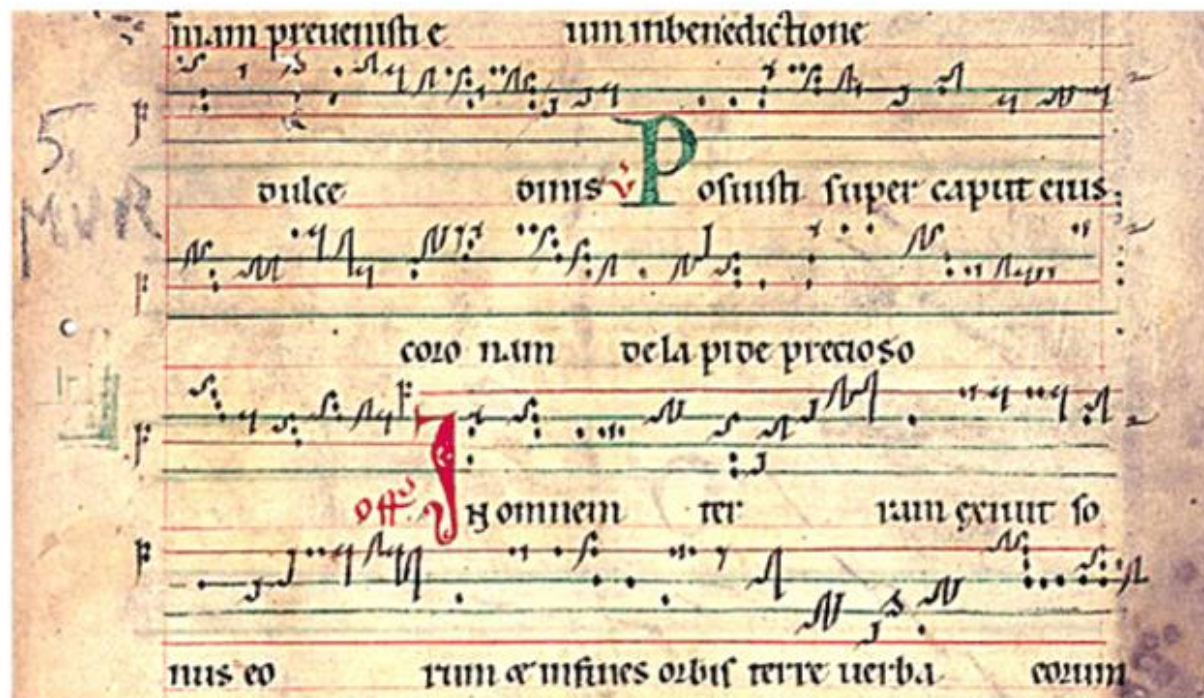 niam prevenisti e um inbenedictione
5.
MVR
dulce dinis v Posuisti super caput eius
coro nam dela pide precioso
off In omnem ter ram exiuit so
nus eo rum & infines orbis terre uerba eorum